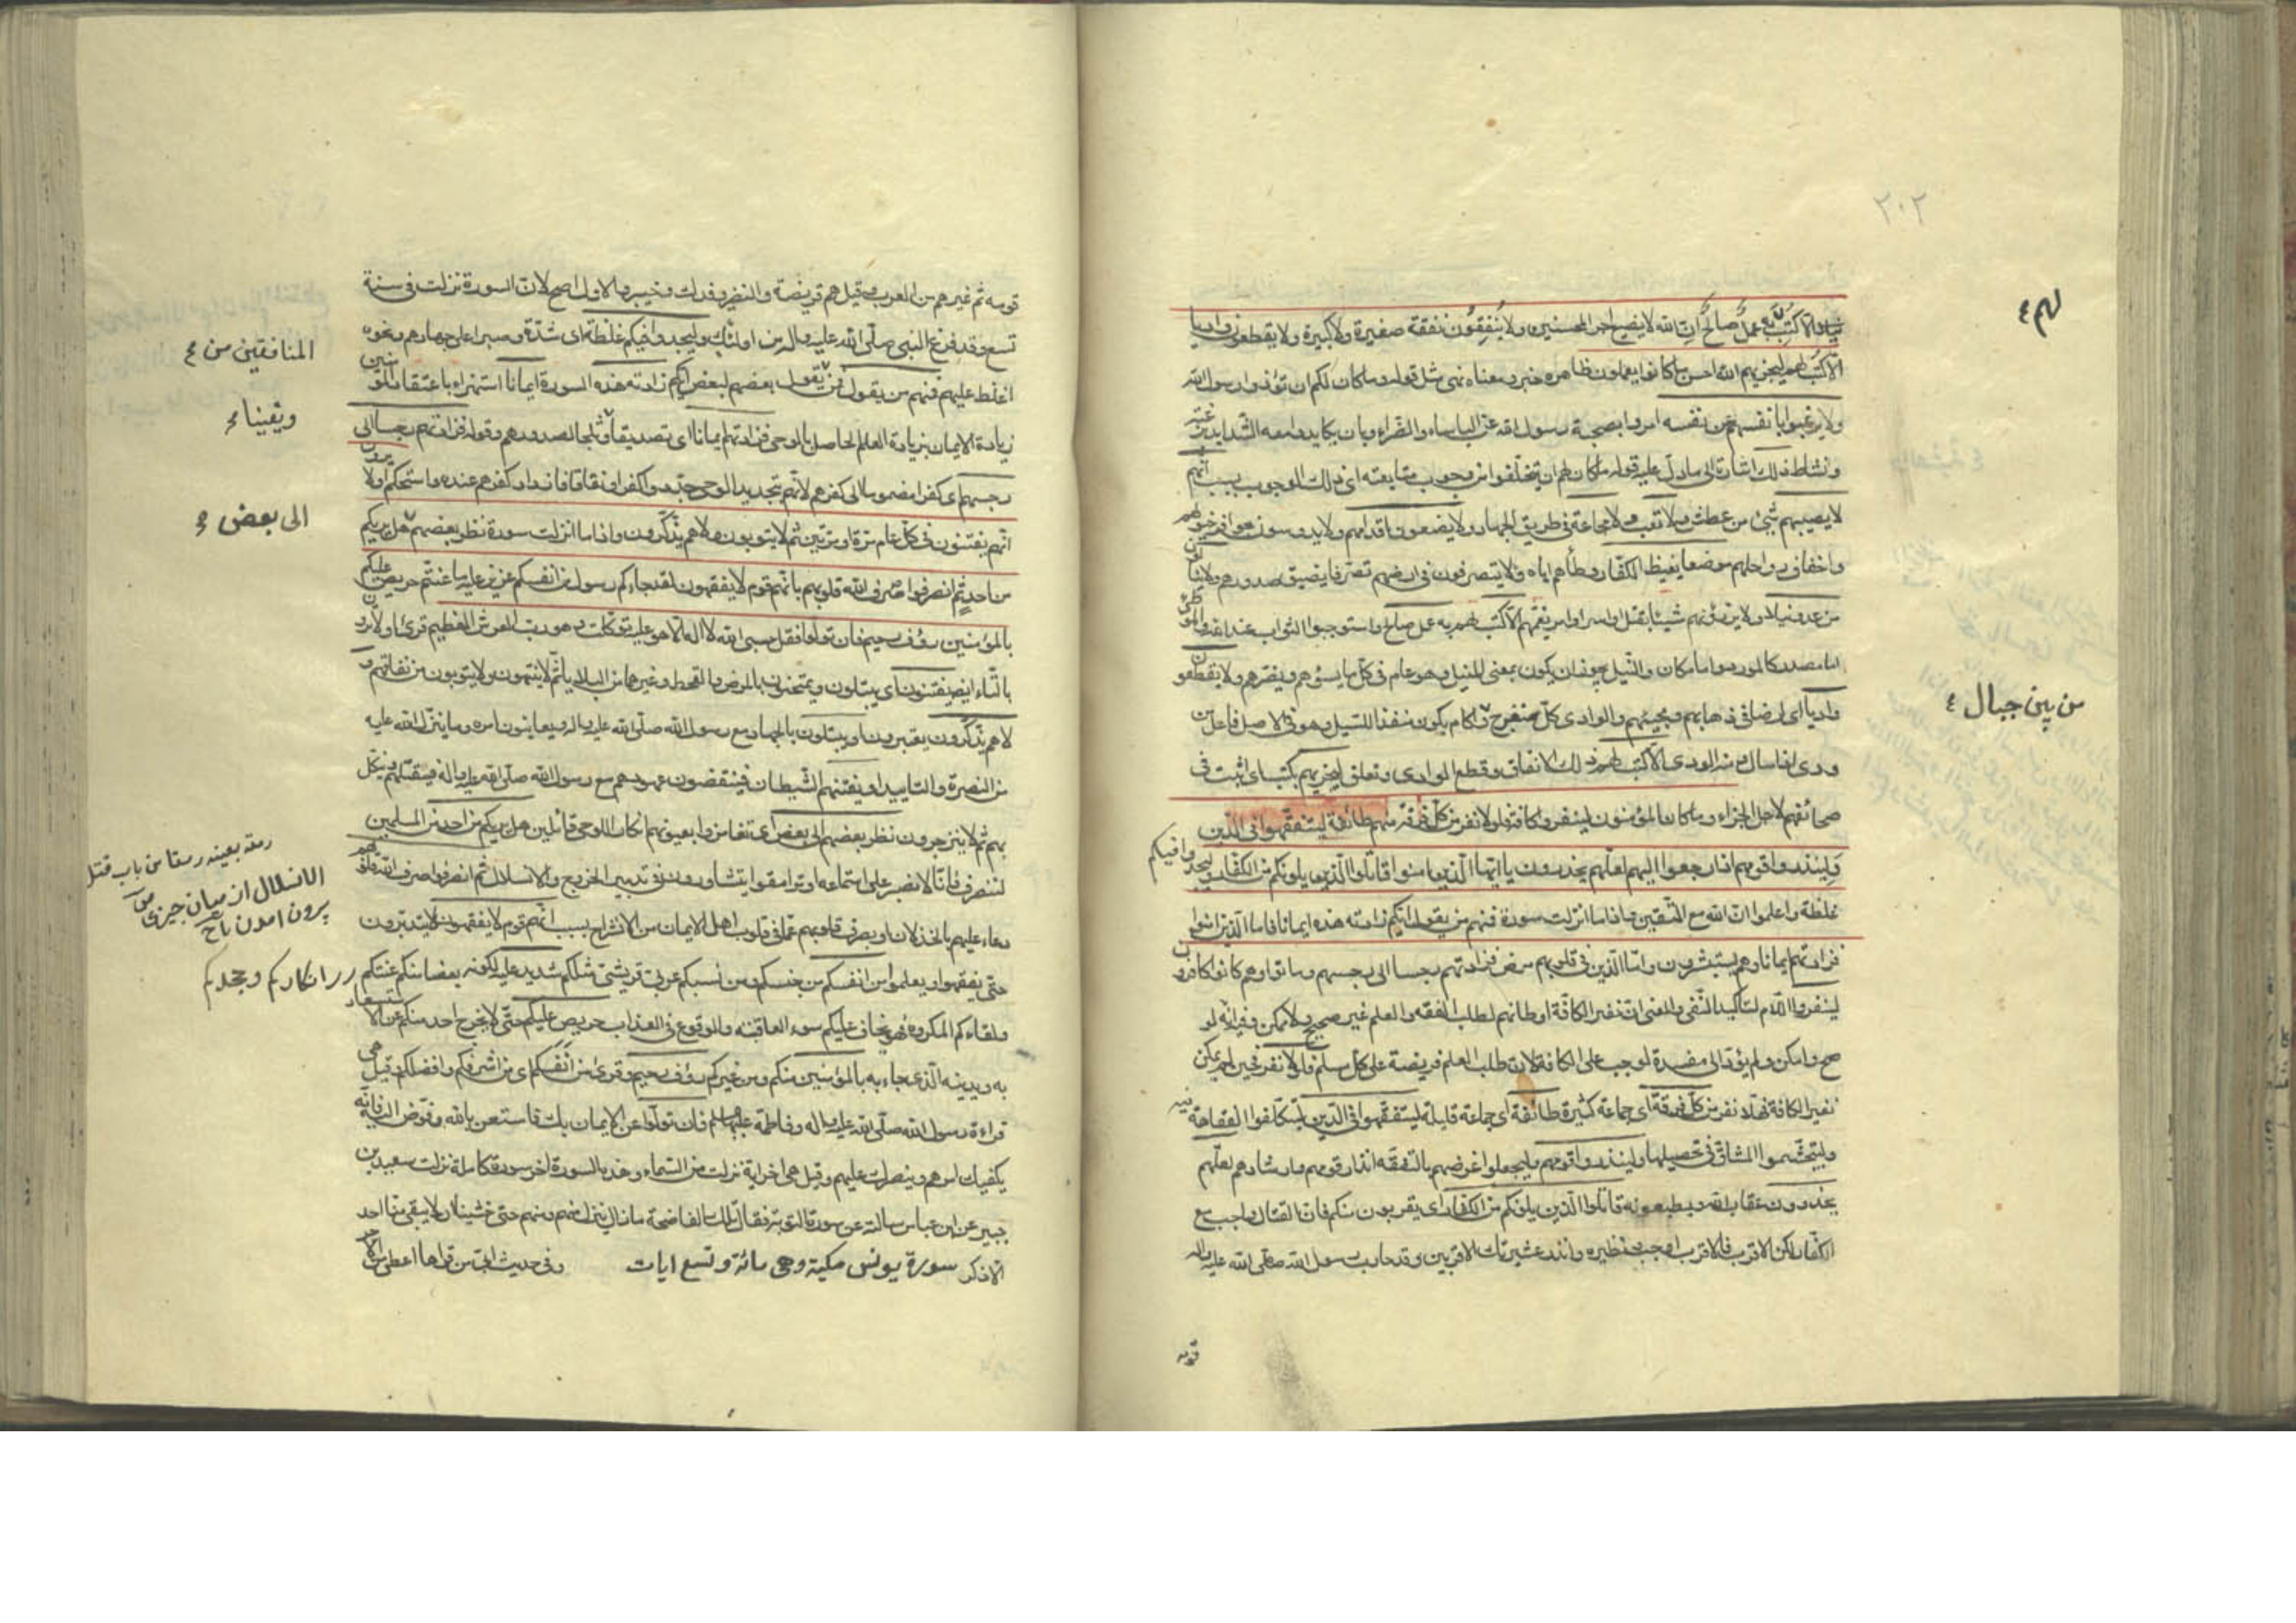 ٢٠٢
لهم ٤
نيلا الا كتب لهم به عمل صالح ان الله لا يضيع اجر المحسنين ولا ينفقون نفقة صغيرة ولا كبيرة ولا يقطعون واديا
الا كتب لهم ليجزيهم الله احسن ما كانوا يعملون ظاهره خبر ومعناه نهى مثل قوله وما كان لكم ان تؤذوا رسول الله
ولا يرغبوا بانفسهم عن نفسه امروا بصحبة رسول الله على الباساء والضراء وبان يكابدوا معه الشدايد برغبة
ونشاط ذلك اشارة الى ما دل عليه قوله ما كان لهم ان يتخلفوا من وجوب متابعته اى ذلك الوجوب بسبب انهم
لا يصيبهم شئ من عطش ولا تعب ولا مجاعة فى طريق الجهاد ولا يضعون اقدامهم ولا يدوسون بحوافر خيولهم
واخفاف رواحلهم موضعا يغيظ الكفار وطأهم اياه ولا يتصرفون فى ارضهم تصرفا يضيق صدورهم ولا ينالون
من عدو نيلا ولا يرزؤنهم شيئا بقتل او اسر او امر يغمهم الا كتب لهم به عمل صالح واستوجبوا الثواب عند الله والموطئ
اما مصدر كالمورد واما مكان والنيل يجوز ان يكون بمعنى المنيل وهو عام فى كل ما يسوءهم ويضرهم ولا يقطعون
من بين جبال ٤
واديا اى ارضا فى ذهابهم ومجيئهم والوادى كل منفرج واكام يكون منفذا للسيل وهو فى الاصل فاعل من
ودى اذا سال ومنه الودى الا كتب لهم ذلك الانفاق وقطع الوادى وتعلق ليجزيهم بكتب اى اثبت فى
صحائفهم لاجل الجزاء وما كان المؤمنون لينفروا كافة فلولا نفر من كل فرقة منهم طائفة ليتفقهوا فى الدين
ولينذروا قومهم اذا رجعوا اليهم لعلهم يحذرون يا ايها الذين امنوا قاتلوا الذين يلونكم من الكفار وليجدوا فيكم
غلظة واعلموا ان الله مع المتقين واذا ما انزلت سورة فمنهم من يقول ايكم زادته هذه ايمانا فاما الذين امنوا
فزادتهم ايمانا وهم يستبشرون واما الذين فى قلوبهم مرض فزادتهم رجسا الى رجسهم وماتوا وهم كافرون
لينفروا اللام لتاكيد النفى والمعنى ان نفير الكافة اوطانهم لطلب الفقه والعلم غير صحيح ولا ممكن وفيه انه لو
صح وامكن ولم يؤد الى مفسدة لوجب على الكافة لان طلب العلم فريضة على كل مسلم فلولا نفر فحين لم يمكن
نفير الكافة فهلا نفر من كل فرقة اى جماعة كثيرة طائفة اى جماعة قليلة ليتفقهوا فى الدين ليتكلفوا الفقاهة فيه
وليتجشموا المشاق فى تحصيلها ولينذروا قومهم وليجعلوا غرضهم بالتفقه انذار قومهم وارشادهم لعلهم
يحذرون عقاب الله ويطيعونه قاتلوا الذين يلونكم من الكفار اى يقربون منكم فان القتال واجب مع
الكفار لكن الاقرب فالاقرب اوجب ونظيره وانذر عشيرتك الاقربين وقد حارب رسول الله صلى الله عليه واله
قومه
قومه ثم غيرهم من العرب وقيل هم قريضة والنضير وفدك وخيبر والاول اصح لان السورة نزلت فى سنة
تسع وقد فرغ النبى صلى الله عليه واله من اولئك وليجدوا فيكم غلظة اى شدة وصبرا على جهادهم ونحوه
المنافقين من ٤
اغلظ عليهم فمنهم من يقول بعضهم لبعض ايكم زادته هذه السورة ايمانا استهزاء باعتقاد المؤمنين
ويقينا ٤
زيادة الايمان بزيادة العلم الحاصل بالوحى فزادتهم ايمانا اى تصديقا وثلجا لصدورهم وقوله فزادتهم رجسا الى
رجسهم اى كفرا مضموما الى كفرهم لانهم بتجديد الوحى جددوا كفرا ونفاقا فازداد كفرهم عنده واستحكم اولا يرون
الى بعض ٤
انهم يفتنون فى كل عام مرة او مرتين ثم لا يتوبون ولا هم يذكرون واذا ما انزلت سورة نظر بعضهم هل يريكم
من احد ثم انصرفوا صرف الله قلوبهم بانهم قوم لا يفقهون لقد جاءكم رسول من انفسكم عزيز عليه ما عنتم حريص عليكم
بالمؤمنين رؤف رحيم فان تولوا فقل حسبى الله لا اله الا هو عليه توكلت وهو رب العرش العظيم قرئ اولا ترون
بالتاء ايضا يفتنون اى يبتلون ويمتحنون بالمرض والقحط وغيرهما من البلايا ثم لا ينتهون ولا يتوبون من نفاقهم و
لا هم يذكرون يعتبرون او يبتلون بالجهاد مع رسول الله صلى الله عليه واله ويعاينون امره وما ينزل الله عليه
من النصرة والتاييد او يفتنهم الشيطان فينقضون عهودهم مع رسول الله صلى الله عليه واله فيقتلهم وينكل
بهم ثم لا ينزجرون نظر بعضهم الى بعض اى تغامزوا بعيونهم انكارا للوحى قائلين هل يريكم من احد من المسلمين
رمقه بعينه رمقا من باب قتل
لننصرف فانا لا نصبر على استماعه او ترامقوا يتشاورون فى تدبير الخروج والانسلال ثم انصرفوا صرف الله قلوبهم
الانسلال از ميان چيزى
بيرون امدن
دعاء عليهم بالخذلان او بصرف قلوبهم عما فى قلوب اهل الايمان من الانشراح بسبب انهم قوم لا يفقهون لا يتدبرون
حتى يفقهوا ويعلموا من انفسكم من جنسكم ومن نسبكم عربى قرشى مثلكم شديد عليه لكونه بعضا منكم عنتكم
انكاركم وجحدكم
ولقاءكم المكروه فهو يخاف عليكم سوء العاقبة والوقوع فى العذاب حريص عليكم حتى لا يخرج احد منكم عن الاستسعاد
به وبدينه الذى جاء به بالمؤمنين منكم ومن غيركم رؤف رحيم وقرئ من انفسكم اى من اشرفكم وافضلكم وقيل هى
قراءة رسول الله صلى الله عليه واله وفاطمة عليهما السلم فان تولوا عن الايمان بك فاستعن بالله وفوض اليه فانه
يكفيك امرهم وينصرك عليهم وقيل هى اخر اية نزلت من السماء واخر سورة كاملة نزلت سعيد بن
جبير عن ابن عباس سالته عن سورة التوبة فقال تلك الفاضحة ما زال ينزل منهم ومنهم حتى خشينا ان لا يبقى منا احد
الا ذكر سورة يونس مكية وهى مائة وتسع ايات وفى حديث ابى من قراها اعطى من الاجر